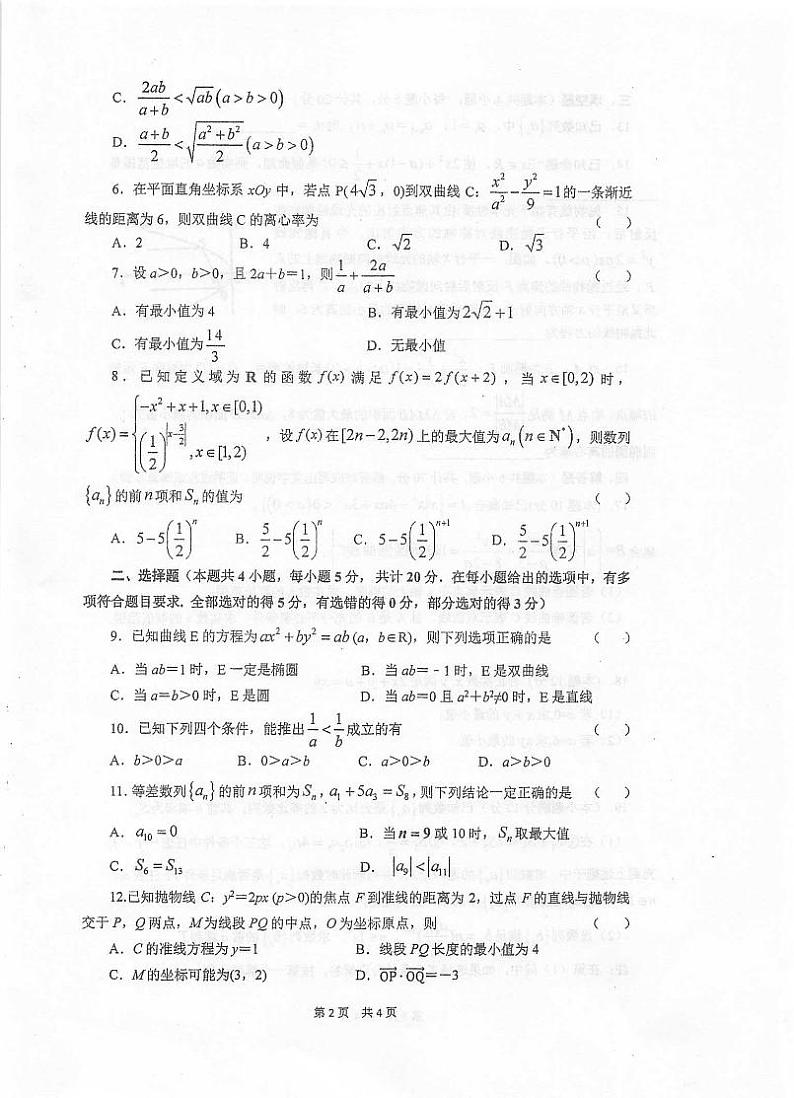 C．$\frac{2ab}{a+b}<\sqrt{ab}(a>b>0)$
D．$\frac{a+b}{2}<\sqrt{\frac{a^2+b^2}{2}}(a>b>0)$
6．在平面直角坐标系 xOy 中，若点 P($4\sqrt{3}$，0)到双曲线 C：$\frac{x^2}{a^2}-\frac{y^2}{9}=1$的一条渐近
线的距离为 6，则双曲线 C 的离心率为 （ ）
A．2 B．4 C．$\sqrt{2}$ D．$\sqrt{3}$
7．设 a＞0，b＞0，且 2a＋b＝1，则$\frac{1}{a}+\frac{2a}{a+b}$ （ ）
A．有最小值为 4 B．有最小值为$2\sqrt{2}+1$
C．有最小值为$\frac{14}{3}$ D．无最小值
8．已知定义域为 R 的函数 $f(x)$ 满足 $f(x)=2f(x+2)$，当 $x\in[0,2)$ 时，
$f(x)=\begin{cases}-x^2+x+1,x\in[0,1)\\\left(\frac{1}{2}\right)^{\left|x-\frac{3}{2}\right|},x\in[1,2)\end{cases}$，设 $f(x)$ 在$[2n-2,2n)$上的最大值为$a_n(n\in N^*)$，则数列
$\{a_n\}$的前$n$项和$S_n$的值为 （ ）
A．$5-5\left(\frac{1}{2}\right)^n$ B．$\frac{5}{2}-5\left(\frac{1}{2}\right)^n$ C．$5-5\left(\frac{1}{2}\right)^{n+1}$ D．$\frac{5}{2}-5\left(\frac{1}{2}\right)^{n+1}$
二、选择题（本题共 4 小题，每小题 5 分，共计 20 分．在每小题给出的选项中，有多
项符合题目要求．全部选对的得 5 分，有选错的得 0 分，部分选对的得 3 分）
9．已知曲线 E 的方程为$ax^2+by^2=ab$ (a，b∈R)，则下列选项正确的是 （ ）
A．当 ab＝1 时，E 一定是椭圆 B．当 ab＝﹣1 时，E 是双曲线
C．当 a＝b＞0 时，E 是圆 D．当 ab＝0 且 a²＋b²≠0 时，E 是直线
10．已知下列四个条件，能推出$\frac{1}{a}<\frac{1}{b}$成立的有 （ ）
A．b＞0＞a B．0＞a＞b C．a＞0＞b D．a＞b＞0
11. 等差数列$\{a_n\}$的前$n$项和为$S_n$，$a_1+5a_3=S_8$，则下列结论一定正确的是 （ ）
A．$a_{10}=0$ B．当$n=9$或 10 时，$S_n$取最大值
C．$S_6=S_{13}$ D．$|a_9|<|a_{11}|$
12.已知抛物线 C：y²＝2px (p＞0)的焦点 F 到准线的距离为 2，过点 F 的直线与抛物线
交于 P，Q 两点，M 为线段 PQ 的中点，O 为坐标原点，则 （ ）
A．C 的准线方程为 y＝1 B．线段 PQ 长度的最小值为 4
C．M 的坐标可能为(3，2) D．$\overrightarrow{OP}\cdot\overrightarrow{OQ}$＝－3
第 2 页 共 4 页